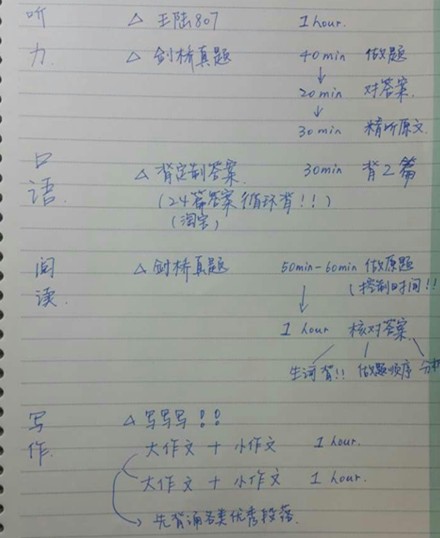 听 △ 王陆807 1 hour.
力. △ 剑桥真题 40min 做题
↓
20min 对答案.
↓
30min 精听原文.
口 △ 背定制答案. 30min 背2篇
语. (24篇答案循环背!!)
(淘宝)
阅 △ 剑桥真题 50min-60min 做原题
读. (控制时间!!
↓
1 hour 核对答案
生词背!! 做题顺序 分析
写 △ 写写写!!
作. 大作文 + 小作文 1 hour.
大作文 + 小作文 1 hour.
→ 先背诵各类优秀段落.